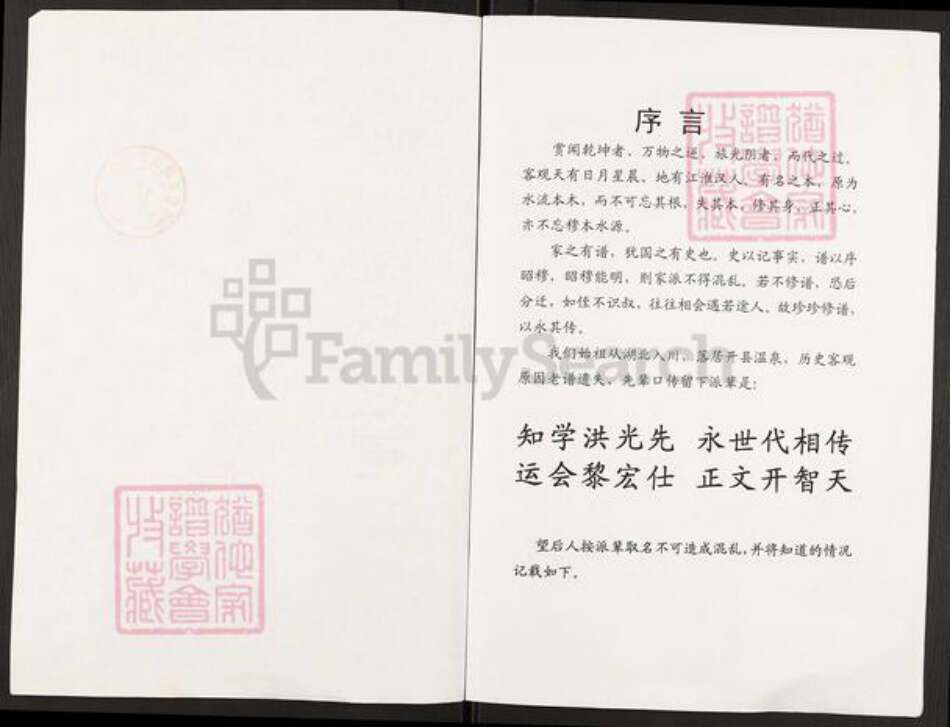 序言
赏闻乾坤者、万物之逆、旅光阴者、而代之过、
客观天有日月星晨、地有江淮汉人、有名之本、原为
水流本木，而不可忘其根，失其本，修其身，正其心，
亦不忘穆本水源。
家之有谱，犹国之有史也。史以记事实，谱以序
昭穆，昭穆能明，则家派不得混乱。若不修谱，恐后
分迁，如侄不识叔，往往相会遇若途人。故珍珍修谱，
以永其传。
我们始祖从湖北入川，落居开县温泉，历史客观
原因老谱遗失，先辈口传留下派辈是：
知学洪光先 永世代相传
运会黎宏仕 正文开智天
望后人按派辈取名不可造成混乱，并将知道的情况
记载如下。
FamilySearch